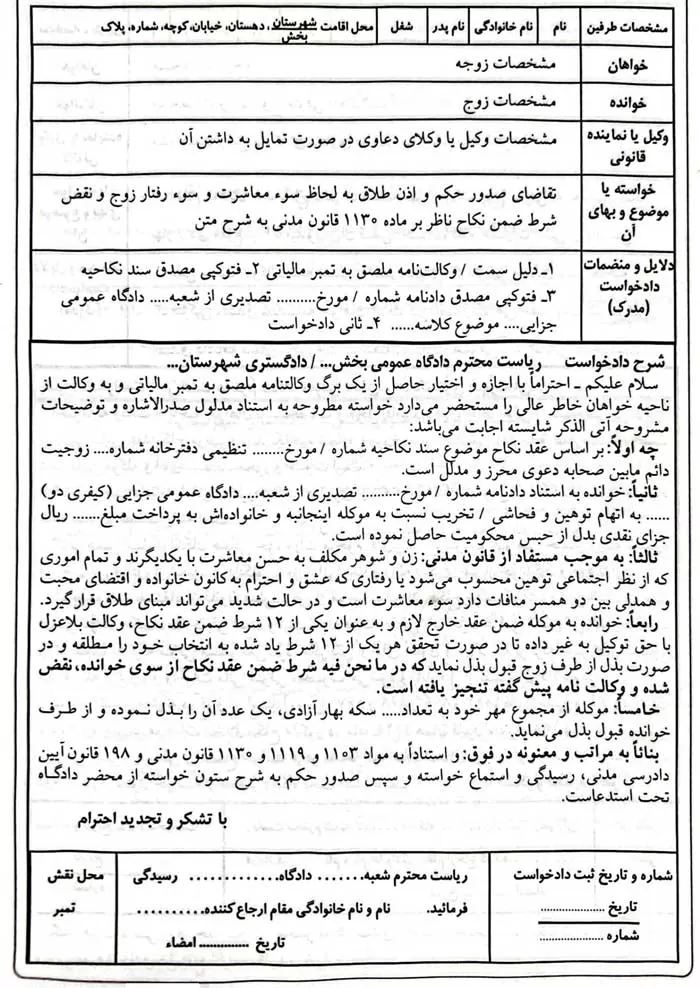 مشخصات طرفین
نام
نام خانوادگی
نام پدر
شغل
محل اقامت شهرستان، دهستان، خیابان، کوچه، شماره، پلاک
بخش
خواهان
مشخصات زوجه
خوانده
مشخصات زوج
وکیل یا نماینده
قانونی
مشخصات وکیل یا وکلای دعاوی در صورت تمایل به داشتن آن
خواسته یا
موضوع و بهای
آن
تقاضای صدور حکم و اذن طلاق به لحاظ سوء معاشرت و سوء رفتار زوج و نقض
شرط ضمن نکاح ناظر بر ماده ۱۱۳۰ قانون مدنی به شرح متن
دلایل و منضمات
دادخواست
(مدرک)
۱ـ دلیل سمت / وکالت‌نامه ملصق به تمبر مالیاتی ۲ـ فتوکپی مصدق سند نکاحیه
۳ـ فتوکپی مصدق دادنامه شماره / مورخ.......... تصدیری از شعبه..... دادگاه عمومی
جزایی.... موضوع کلاسه...... ۴ـ ثانی دادخواست
شرح دادخواست ریاست محترم دادگاه عمومی بخش... / دادگستری شهرستان...
سلام علیکم ـ احتراماً با اجازه و اختیار حاصل از یک برگ وکالتنامه ملصق به تمبر مالیاتی و به وکالت از
ناحیه خواهان خاطر عالی را مستحضر می‌دارد خواسته مطروحه به استناد مدلول صدرالاشاره و توضیحات
مشروحه آتی الذکر شایسته اجابت می‌باشد:
چه اولاً: بر اساس عقد نکاح موضوع سند نکاحیه شماره / مورخ........ تنظیمی دفترخانه شماره.... زوجیت
دائم مابین صحابه دعوی محرز و مدلل است.
ثانیاً: خوانده به استناد دادنامه شماره / مورخ.......... تصدیری از شعبه.... دادگاه عمومی جزایی (کیفری دو)
...... به اتهام توهین و فحاشی / تخریب نسبت به موکله اینجانبه و خانواده‌اش به پرداخت مبلغ....... ریال
جزای نقدی بدل از حبس محکومیت حاصل نموده است.
ثالثاً: به موجب مستفاد از قانون مدنی: زن و شوهر مکلف به حسن معاشرت با یکدیگرند و تمام اموری
که از نظر اجتماعی توهین محسوب می‌شود یا رفتاری که عشق و احترام به کانون خانواده و اقتضای محبت
و همدلی بین دو همسر منافات دارد سوء معاشرت است و در حالت شدید می‌تواند مبنای طلاق قرار گیرد.
رابعاً: خوانده به موکله ضمن عقد خارج لازم و به عنوان یکی از ۱۲ شرط ضمن عقد نکاح، وکالت بلاعزل
با حق توکیل به غیر داده تا در صورت تحقق هر یک از ۱۲ شرط یاد شده به انتخاب خود را مطلقه و در
صورت بذل از طرف زوج قبول بذل نماید که در ما نحن فیه شرط ضمن عقد نکاح از سوی خوانده، نقض
شده و وکالت نامه پیش گفته تنجیز یافته است.
خامساً: موکله از مجموع مهر خود به تعداد..... سکه بهار آزادی، یک عدد آن را بذل نموده و از طرف
خوانده قبول بذل می‌نماید.
بنائاً به مراتب و معنونه در فوق: و استناداً به مواد ۱۱۰۳ و ۱۱۱۹ و ۱۱۳۰ قانون مدنی و ۱۹۸ قانون آیین
دادرسی مدنی، رسیدگی و استماع خواسته و سپس صدور حکم به شرح ستون خواسته از محضر دادگاه
تحت استدعاست.
با تشکر و تجدید احترام
شماره و تاریخ ثبت دادخواست
تاریخ ....................
شماره ....................
ریاست محترم شعبه....... دادگاه............. رسیدگی
فرمائید. نام و نام خانوادگی مقام ارجاع کننده..........
تاریخ .............. امضاء
محل نقش
تمبر